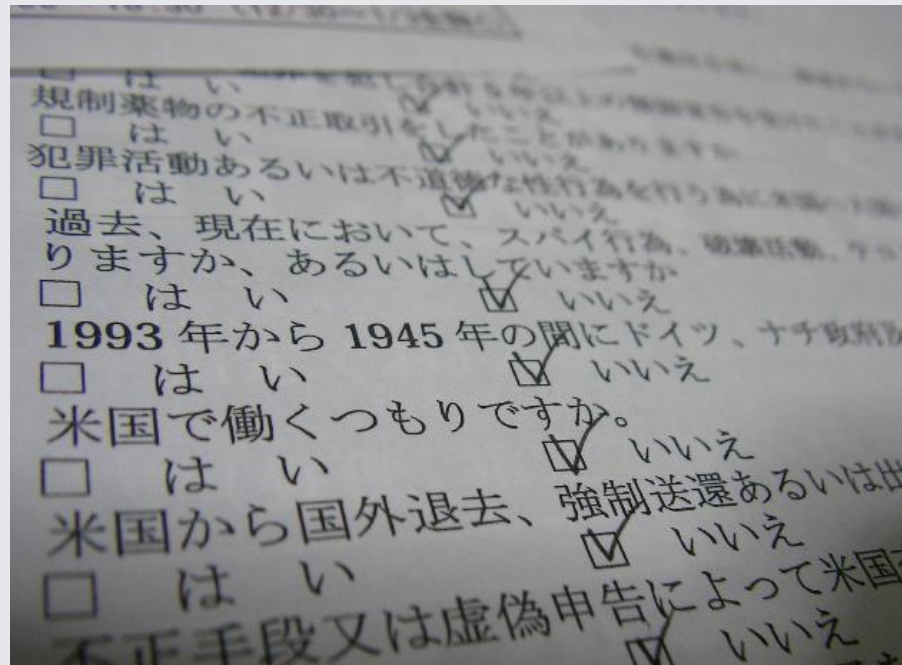 □ は い ☑ いいえ
規制薬物の不正取引をしたことがありますか
□ は い ☑ いいえ
犯罪活動あるいは不道徳な性行為を行う為に米国へ入国
□ は い ☑ いいえ
過去、現在において、スパイ行為、破壊活動、テロ
りますか、あるいはしていますか
□ は い ☑ いいえ
1993 年から 1945 年の間にドイツ、ナチ政府
□ は い ☑ いいえ
米国で働くつもりですか。
□ は い ☑ いいえ
米国から国外退去、強制送還あるいは出
□ は い ☑ いいえ
不正手段又は虚偽申告によって米国
☑ いいえ